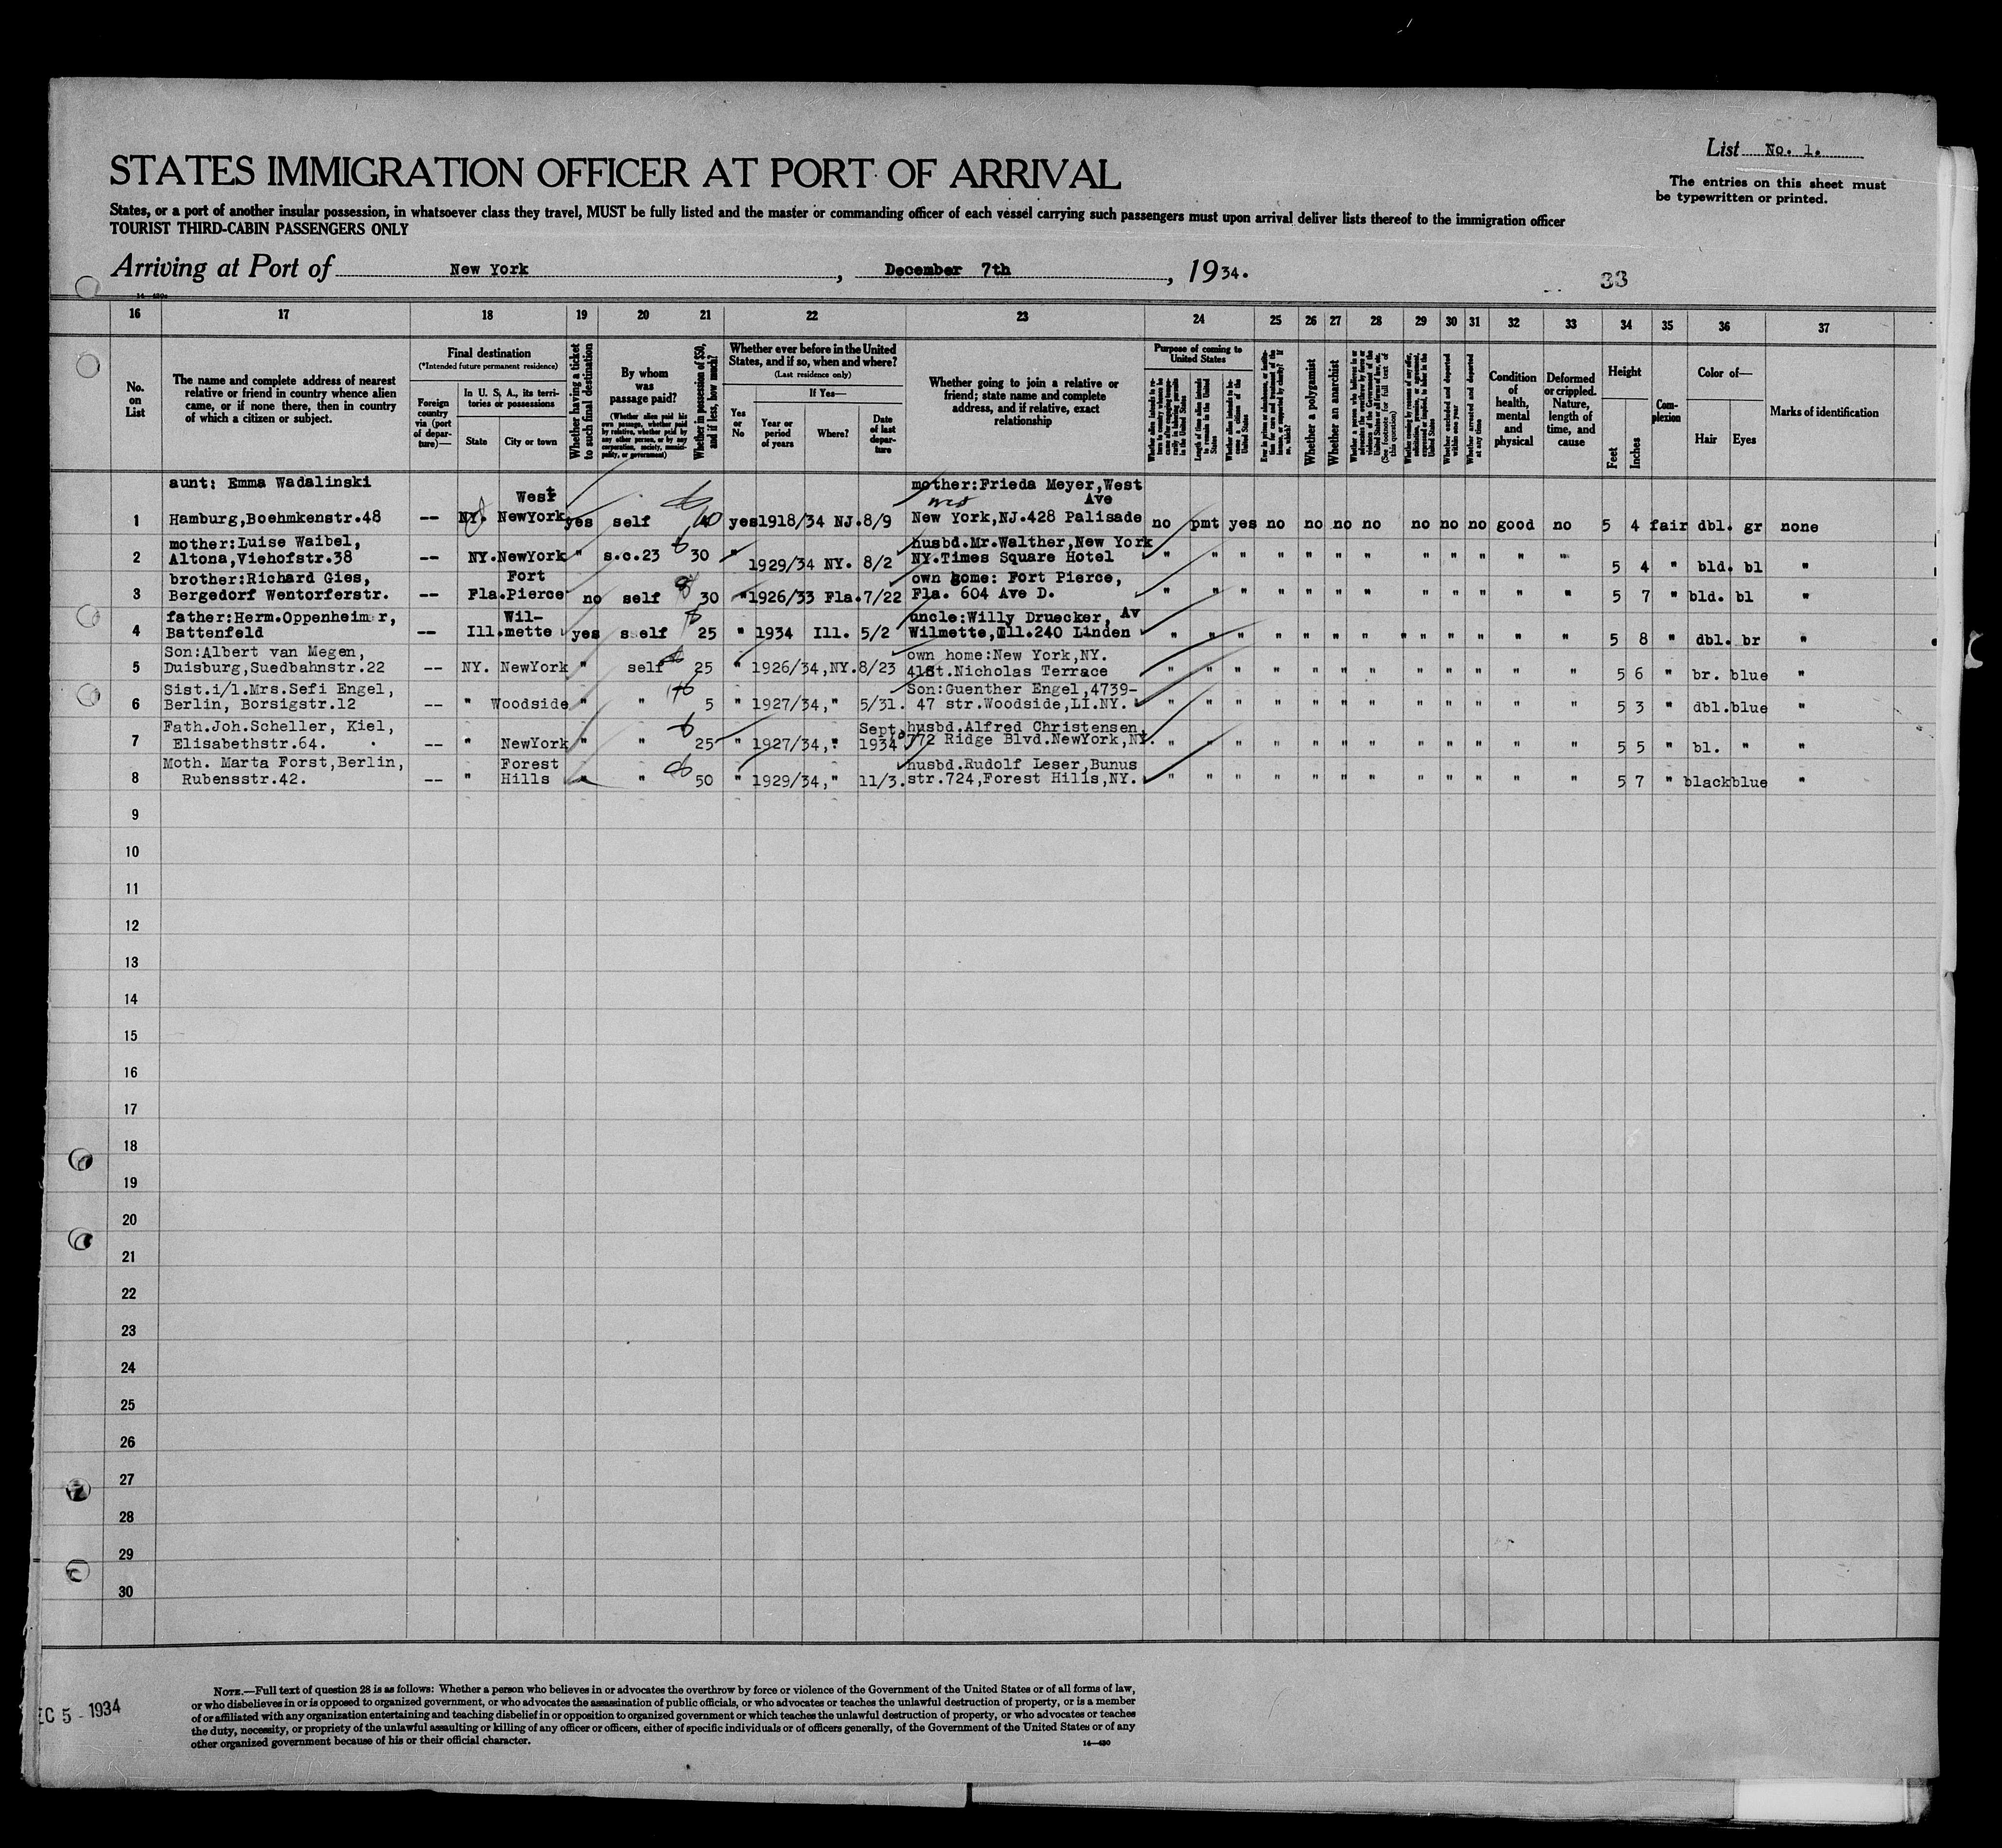 List No. 1.
STATES IMMIGRATION OFFICER AT PORT OF ARRIVAL
The entries on this sheet must
be typewritten or printed.
States, or a port of another insular possession, in whatsoever class they travel, MUST be fully listed and the master or commanding officer of each vessel carrying such passengers must upon arrival deliver lists thereof to the immigration officer
TOURIST THIRD-CABIN PASSENGERS ONLY
Arriving at Port of New York, December 7th, 1934.
33
16 17 18 19 20 21 22 23 24 25 26 27 28 29 30 31 32 33 34 35 36 37
No. on List
The name and complete address of nearest
relative or friend in country whence alien
came, or if none there, then in country
of which a citizen or subject.
Final destination
(*Intended future permanent residence)
Foreign country via (port of departure)—
In U. S. A., its territories or possessions
State
City or town
Whether having a ticket to such final destination
By whom was passage paid?
(Whether alien paid his own passage, whether paid by relative, whether paid by any other person, or by any corporation, society, municipality, or government)
Whether in possession of $50, and if less, how much?
Whether ever before in the United
States, and if so, when and where?
(Last residence only)
Yes or No
If Yes—
Year or period of years
Where?
Date of last departure
Whether going to join a relative or
friend; state name and complete
address, and if relative, exact
relationship
Purpose of coming to United States
Length of time alien intends to remain in the United States
Whether alien intends to become a citizen of the United States
Whether a polygamist
Whether an anarchist
Whether excluded and deported within one year
Whether arrested and deported at any time
Condition of health, mental and physical
Deformed or crippled. Nature, length of time, and cause
Height
Feet
Inches
Complexion
Color of—
Hair
Eyes
Marks of identification
aunt: Emma Wadalinski West mother:Frieda Meyer,West
Ave
1 Hamburg,Boehmkenstr.48 -- NY. NewYork yes self yes 1918/34 NJ. 8/9 New York,NJ.428 Palisade no pmt yes no no no no no no no good no 5 4 fair dbl. gr none
mother:Luise Waibel, husbd.Mr.Walther,New York
2 Altona,Viehofstr.38 -- NY. NewYork " s.c.23 30 " 1929/34 NY. 8/2 NY.Times Square Hotel " " " " " " " " " " " " 5 4 " bld. bl "
brother:Richard Gies, Fort own home: Fort Pierce,
3 Bergedorf Wentorferstr. -- Fla. Pierce no self 30 " 1926/33 Fla. 7/22 Fla. 604 Ave D. " " " " " " " " " " " " 5 7 " bld. bl "
father:Herm.Oppenheimer, Wil- uncle:Willy Druecker, Av
4 Battenfeld -- Ill. mette yes self 25 " 1934 Ill. 5/2 Wilmette,Ill.240 Linden " " " " " " " " " " " " 5 8 " dbl. br "
Son:Albert van Megen, own home:New York,NY.
5 Duisburg,Suedbahnstr.22 -- NY. NewYork " self 25 " 1926/34,NY. 8/23 41St.Nicholas Terrace " " " " " " " " " " " " 5 6 " br. blue "
Sist.i/l.Mrs.Sefi Engel, Son:Guenther Engel,4739-
6 Berlin, Borsigstr.12 -- " Woodside " " 5 " 1927/34," 5/31. 47 str.Woodside,LI.NY. " " " " " " " " " " " " 5 3 " dbl. blue "
Fath.Joh.Scheller, Kiel, Sept. husbd.Alfred Christensen
7 Elisabethstr.64. -- " NewYork " " 25 " 1927/34," 1934 772 Ridge Blvd.NewYork,NY. " " " " " " " " " " " " 5 5 " bl. " "
Moth. Marta Forst,Berlin, Forest husbd.Rudolf Leser,Bunus
8 Rubensstr.42. -- " Hills " " 50 " 1929/34," 11/3. str.724,Forest Hills,NY. " " " " " " " " " " " " 5 7 " black blue "
9
10
11
12
13
14
15
16
17
18
19
20
21
22
23
24
25
26
27
28
29
30
EC 5 - 1934
NOTE.—Full text of question 28 is as follows: Whether a person who believes in or advocates the overthrow by force or violence of the Government of the United States or of all forms of law,
or who disbelieves in or is opposed to organized government, or who advocates the assassination of public officials, or who advocates or teaches the unlawful destruction of property, or is a member
of or affiliated with any organization entertaining and teaching disbelief in or opposition to organized government or which teaches the unlawful destruction of property, or who advocates or teaches
the duty, necessity, or propriety of the unlawful assaulting or killing of any officer or officers, either of specific individuals or of officers generally, of the Government of the United States or of any
other organized government because of his or their official character.
14—430